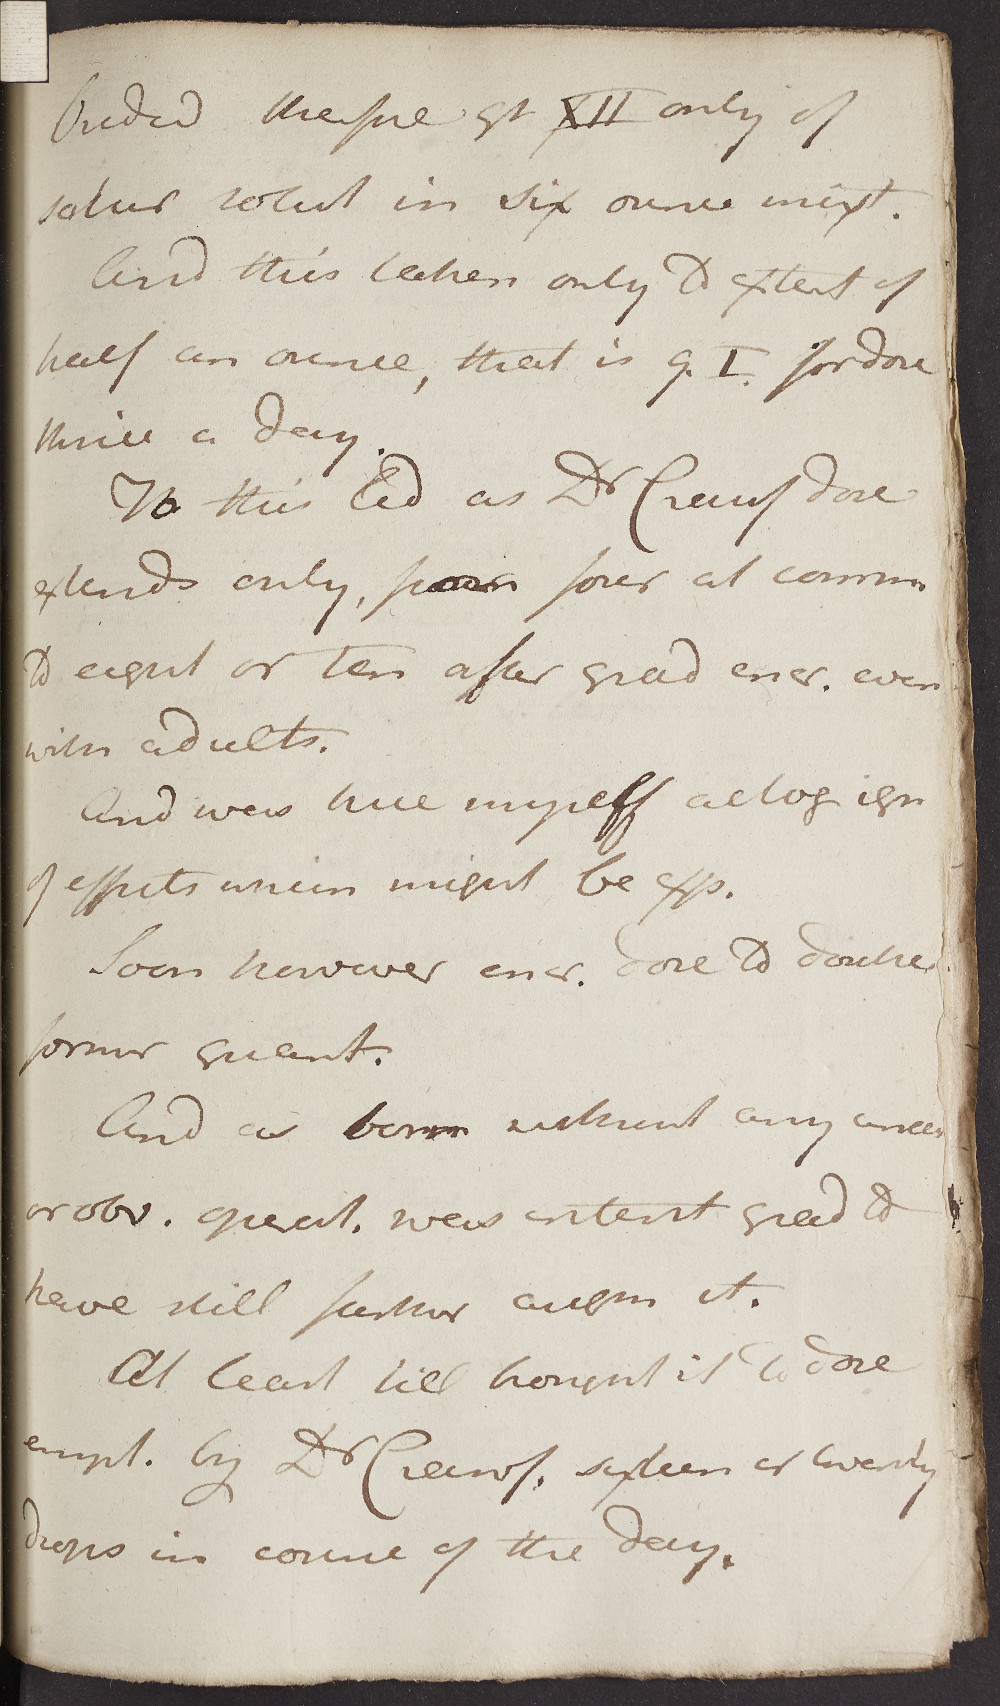 Orded therefore gt XII only of
satur solut in six ounce mixt.
And this taken only to extent of
half an ounce, that is g. I. for dose
thrice a day.
To this led as Dr Crawf dose
extends only, from four at comm
to eight or ten after grad encr. even
with adults.
And was here myself altog ign
of effects which might be exp.
Soon however encr. dose to double
former quant.
And as born without any incon
or obv. operat. was intent grad to
have still farther augm it.
At least till brought it to dose
empl. by Dr Crawf. sixteen or twenty
drops in course of the day.